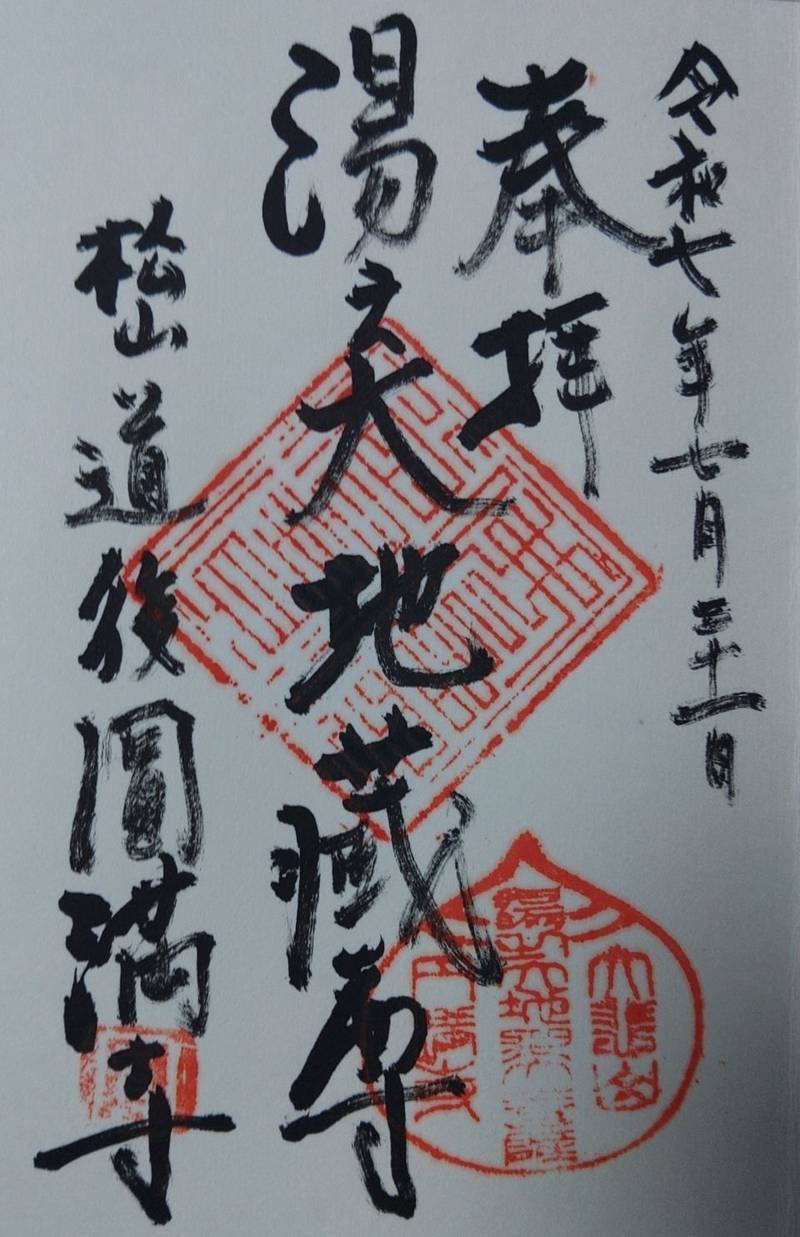 令和七年七月三十一日
奉拝
湯之大地蔵尊
松山道後圓満寺
大悲山
湯之大地蔵菩薩